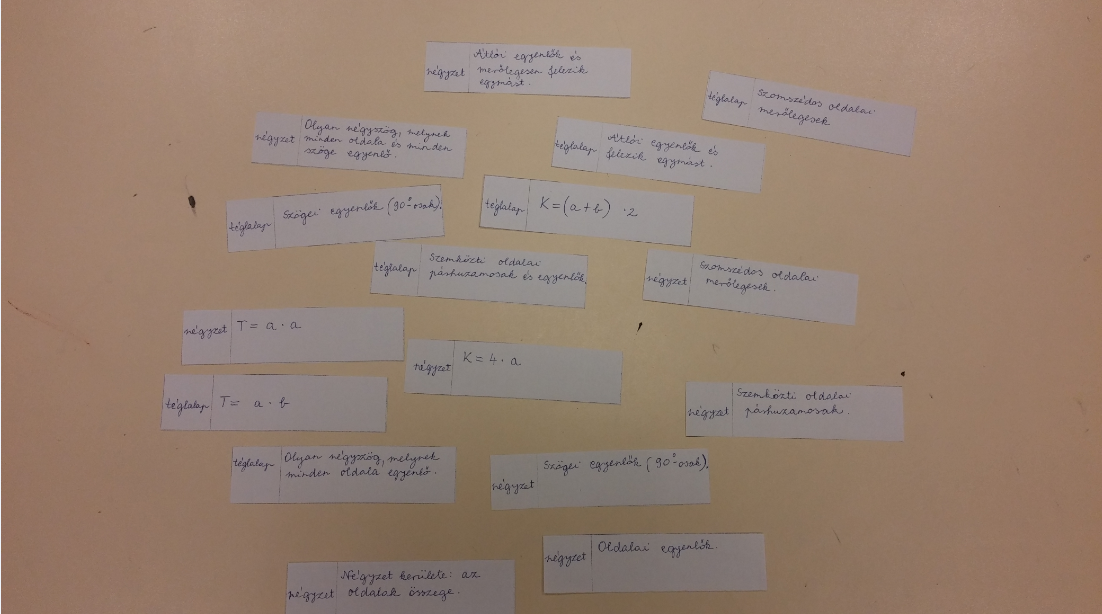 négyzet
Átlói egyenlők és
merőlegesen felezik
egymást.
téglalap
Szomszédos oldalai
merőlegesek
négyzet
Olyan négyszög, melynek
minden oldala és minden
szöge egyenlő.
téglalap
Átlói egyenlők és
felezik egymást.
téglalap
Szögei egyenlők (90°-osak).
téglalap
K=(a+b) ·2
téglalap
Szemközti oldalai
párhuzamosak és egyenlők.
négyzet
Szomszédos oldalai
merőlegesek.
négyzet
T= a · a
négyzet
K= 4 · a
téglalap
T= a · b
négyzet
Szemközti oldalai
párhuzamosak.
téglalap
Olyan négyszög, melynek
minden oldala egyenlő.
négyzet
Szögei egyenlők (90°-osak).
négyzet
Oldalai egyenlők.
négyzet
Négyzet kerülete: az
oldalak összege.